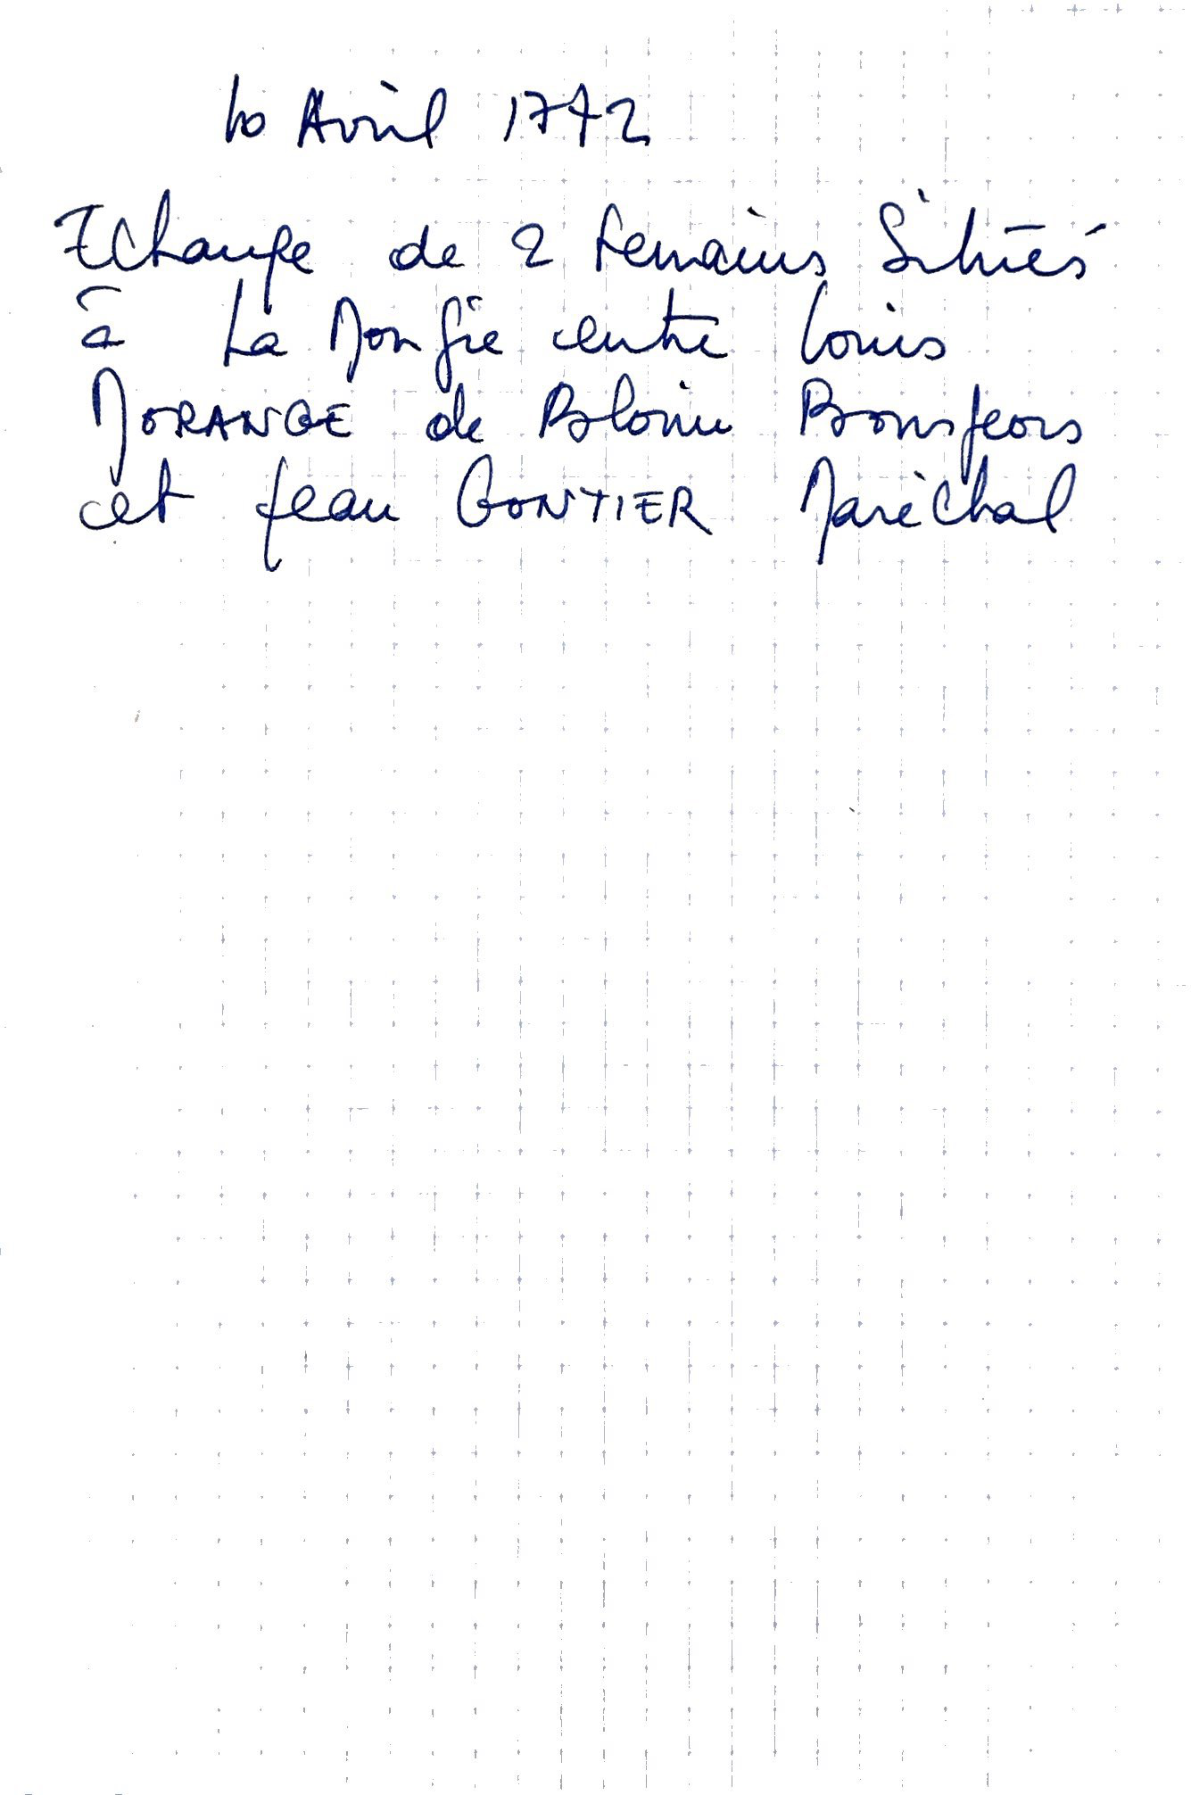 10 Avril 1772
Echange de 2 terrains situés
à La Mongie entre Louis
MORANGE de Blouin Bourgeois
et Jean GONTIER Maréchal